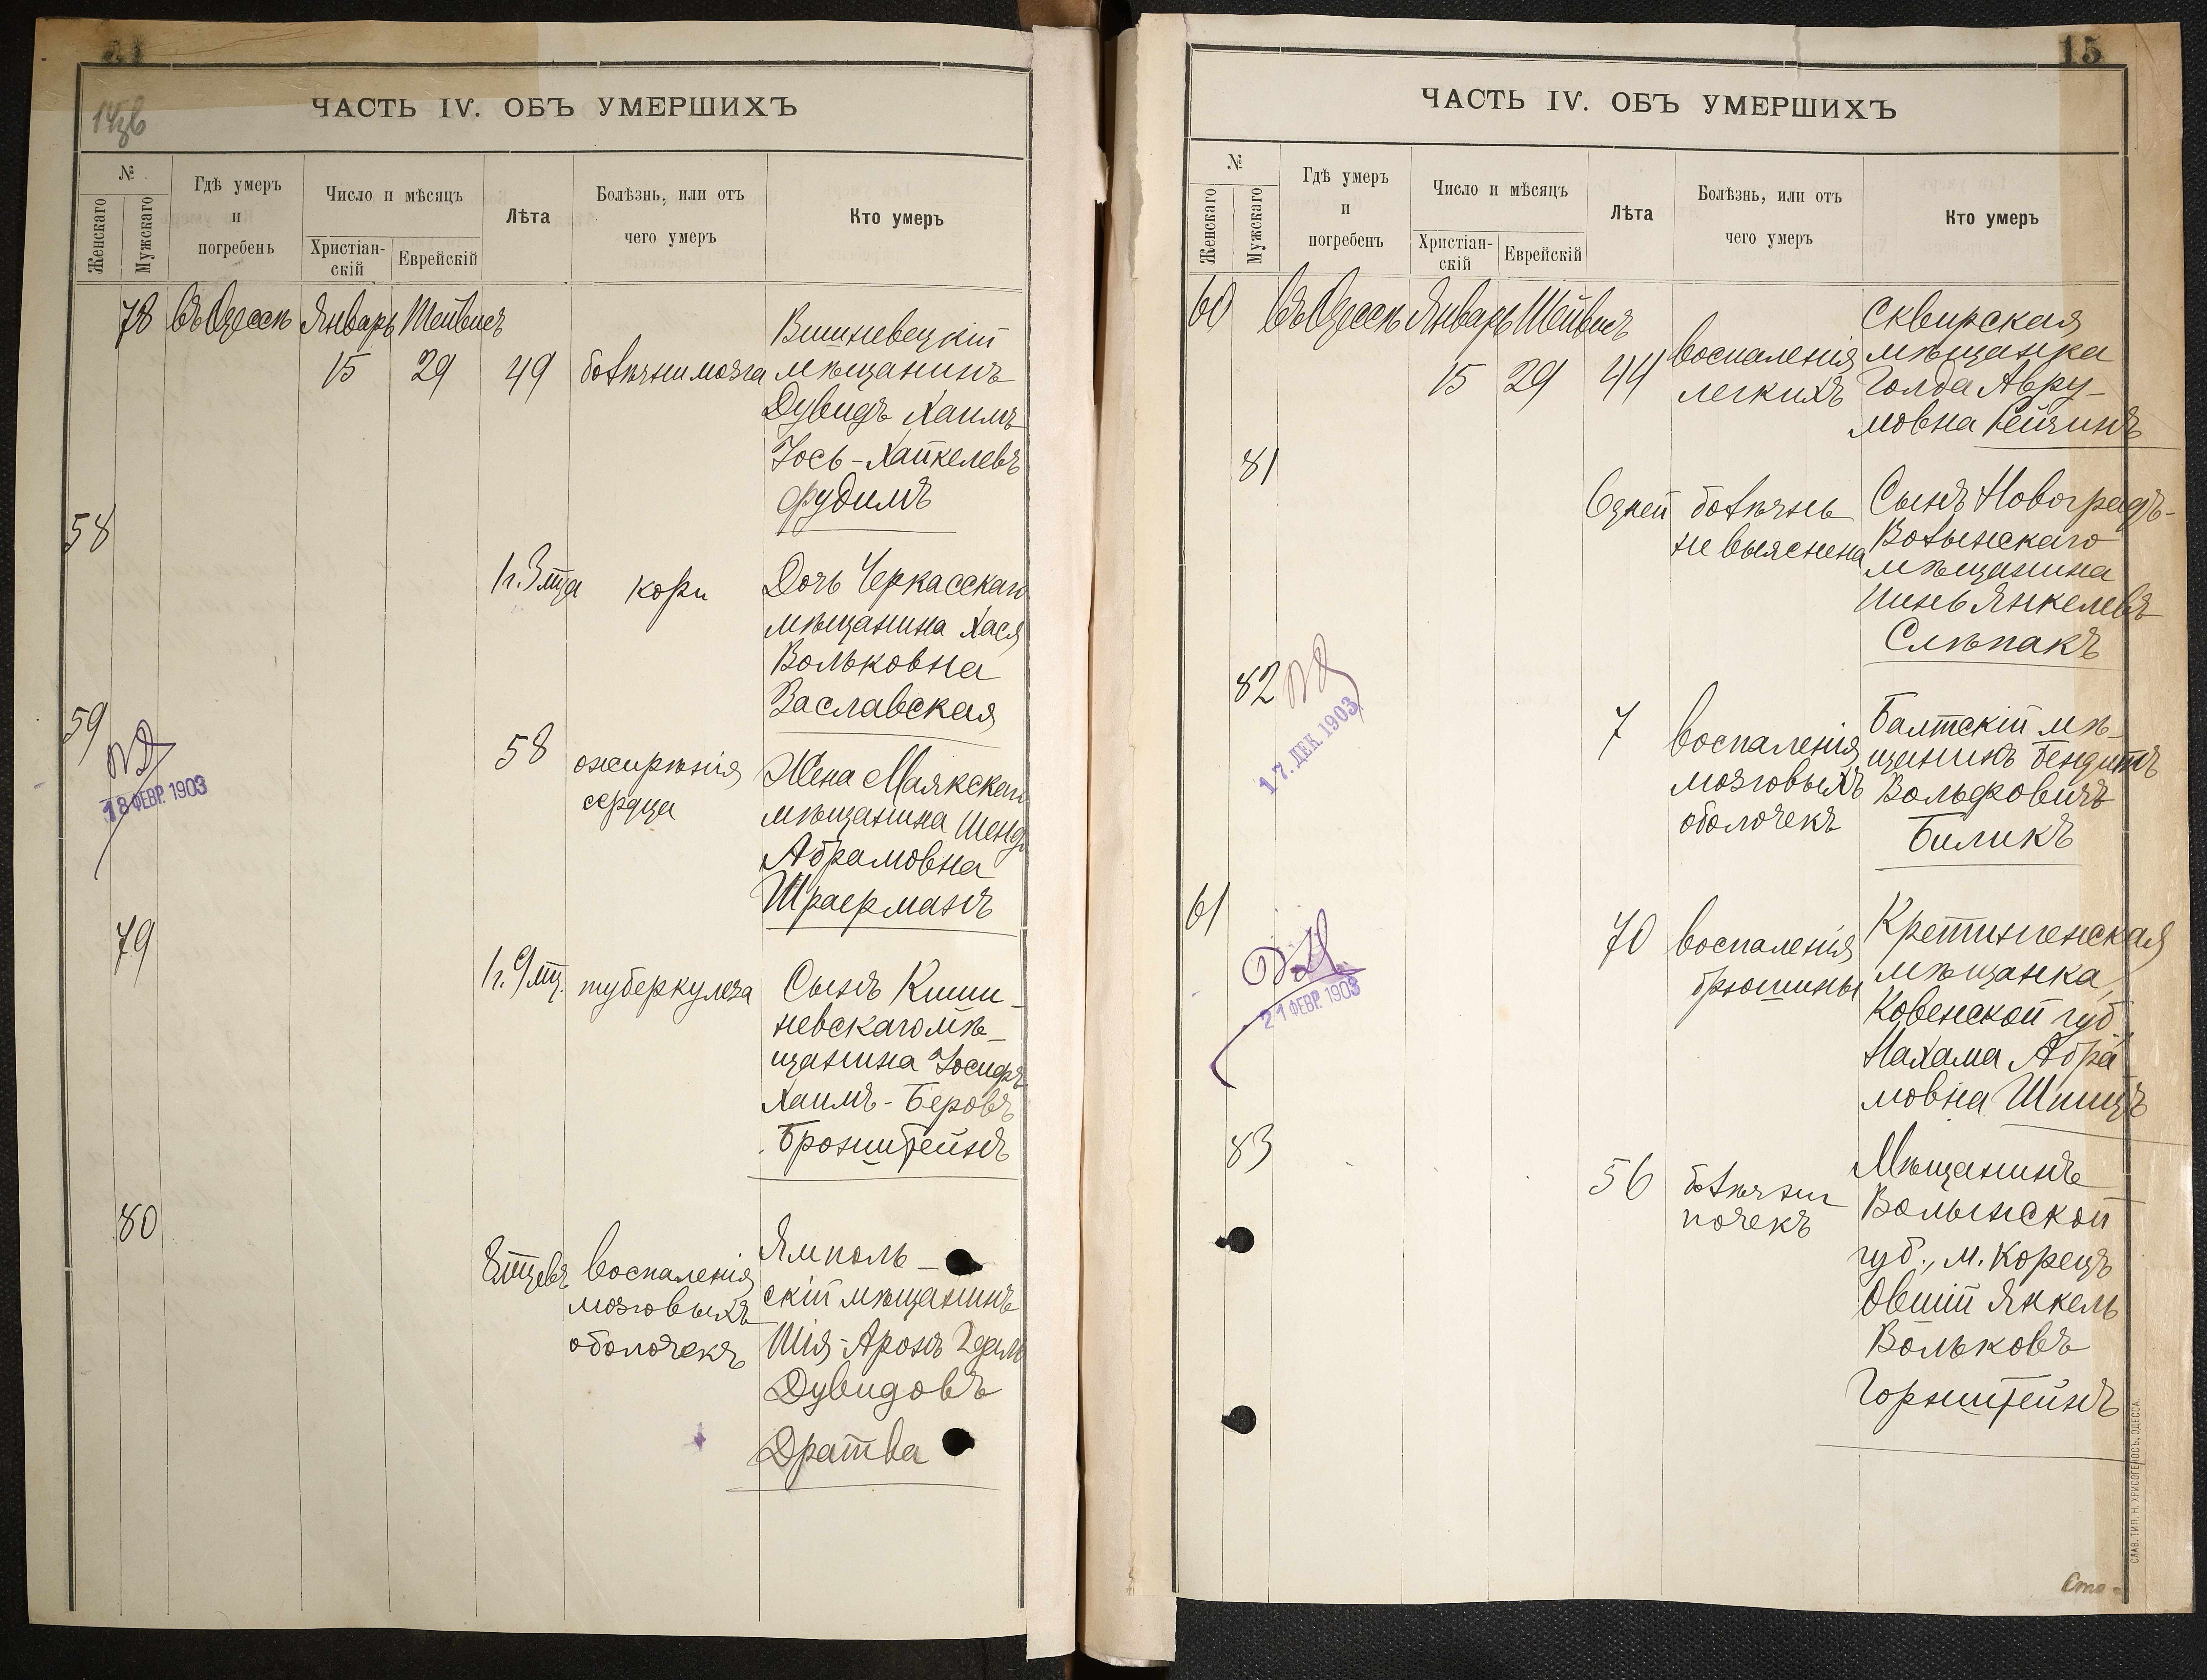 14об
ЧАСТЬ IV. ОБЪ УМЕРШИХЪ
№
Женскаго
Мужскаго
Гдѣ умеръ
и
погребенъ
Число и мѣсяцъ
Христіан-
скій
Еврейскій
Лѣта
Болѣзнь, или отъ
чего умеръ
Кто умеръ
78 Въ Одессѣ Январь Тейвисъ
15 29 49 болѣзни мозга
Вишневецкій
мѣщанинъ
Дувидъ Хаимъ
Іось-Хайкелевъ
Фудимъ
58
1 г. 3 мца кори
Дочь Черкасскаго
мѣщанина Хася
Вольковна
Заславская
59
18 ФЕВР. 1903
58 ожирѣнія
сердца
Жена Маякскаго
мѣщанина Шенд
Абрамовна
Шраерманъ
79
1 г. 9 мц. туберкулеза
Сынъ Киши-
невскаго мѣ-
щанина Іосифъ
Хаимъ-Беровъ
Бронштейнъ
80
8 мцевъ воспаленія
мозговыхъ
оболочекъ
Ямполь-
скій мѣщанинъ
Шія-Аронъ Гдаль
Дувидовъ
Дратва
15
ЧАСТЬ IV. ОБЪ УМЕРШИХЪ
№
Женскаго
Мужскаго
Гдѣ умеръ
и
погребенъ
Число и мѣсяцъ
Христіан-
скій
Еврейскій
Лѣта
Болѣзнь, или отъ
чего умеръ
Кто умеръ
60 Въ Одессѣ Январь Тейвисъ
15 29 44 воспаленія
легкихъ
Сквирская
мѣщанка
Голда Авру-
мовна Рейчинъ
81
6 дней болѣзнь
не выяснена
Сынъ Новоградъ-
Волынскаго
мѣщанина
Пинь Янкелевъ
Слѣпакъ
82
17. ДЕК. 1903
7 воспаленія
мозговыхъ
оболочекъ
Балтскій мѣ-
щанинъ Бендитъ
Вольфовичъ
Биликъ
61
21 ФЕВР. 1903
70 воспаленія
брюшины
Кретингенская
мѣщанка,
Ковенской губ.,
Нахама Абра
мовна Шпицъ
83
56 болѣзни
почекъ
Мѣщанинъ
Волынской
губ., м. Корецъ
Овшій Янкель
Вольковъ
Горнштейнъ
СЛАВ. ТИП. Н. ХРИСОГЕЛОСЪ, ОДЕССА.